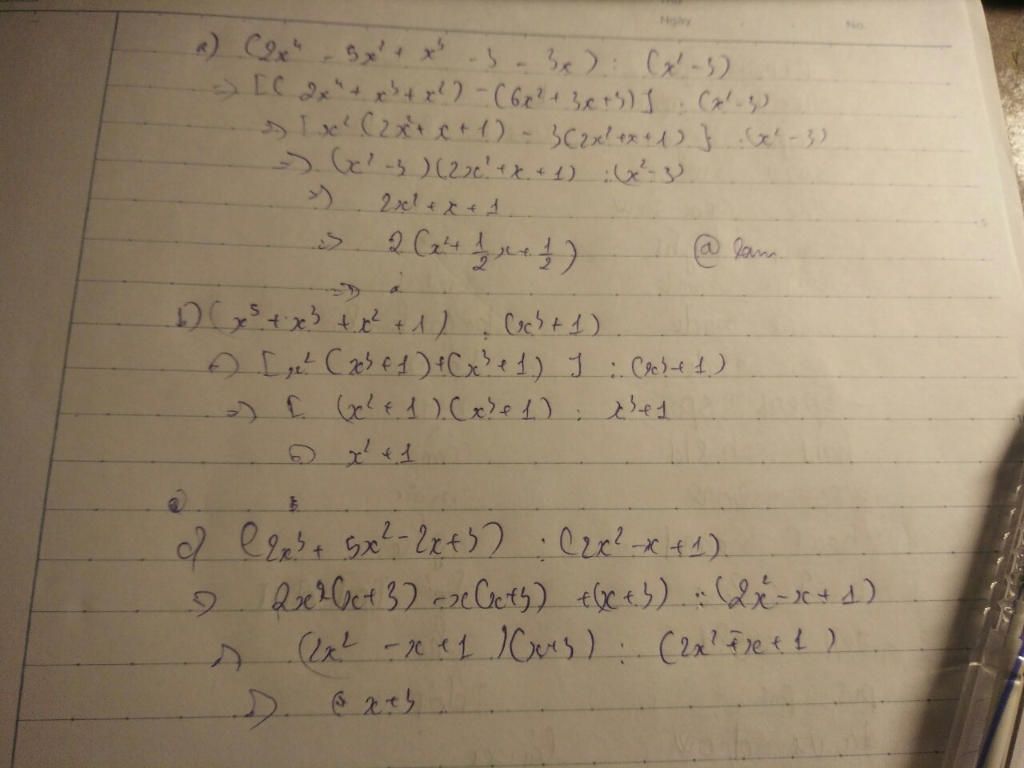 Ngày No.
a) (2x⁴ - 5x² + x³ - 3 - 3x) : (x² - 3)
=> [(2x⁴ + x³ + x²) - (6x² + 3x + 3)] : (x² - 3)
=> [x²(2x² + x + 1) - 3(2x² + x + 1)] : (x² - 3)
=> (x² - 3)(2x² + x + 1) : (x² - 3)
=> 2x² + x + 1
=> 2(x² + 1/2 x + 1/2)
=>
b) (x⁵ + x³ + x² + 1) : (x³ + 1)
=> [x²(x³ + 1) + (x³ + 1)] : (x³ + 1)
=> [(x² + 1)(x³ + 1) : x³ + 1
=> x² + 1
c) (2x³ + 5x² - 2x + 3) : (2x² - x + 1)
=> 2x²(x + 3) - x(x + 3) + (x + 3) : (2x² - x + 1)
=> (2x² - x + 1)(x + 3) : (2x² - x + 1)
=> x + 3